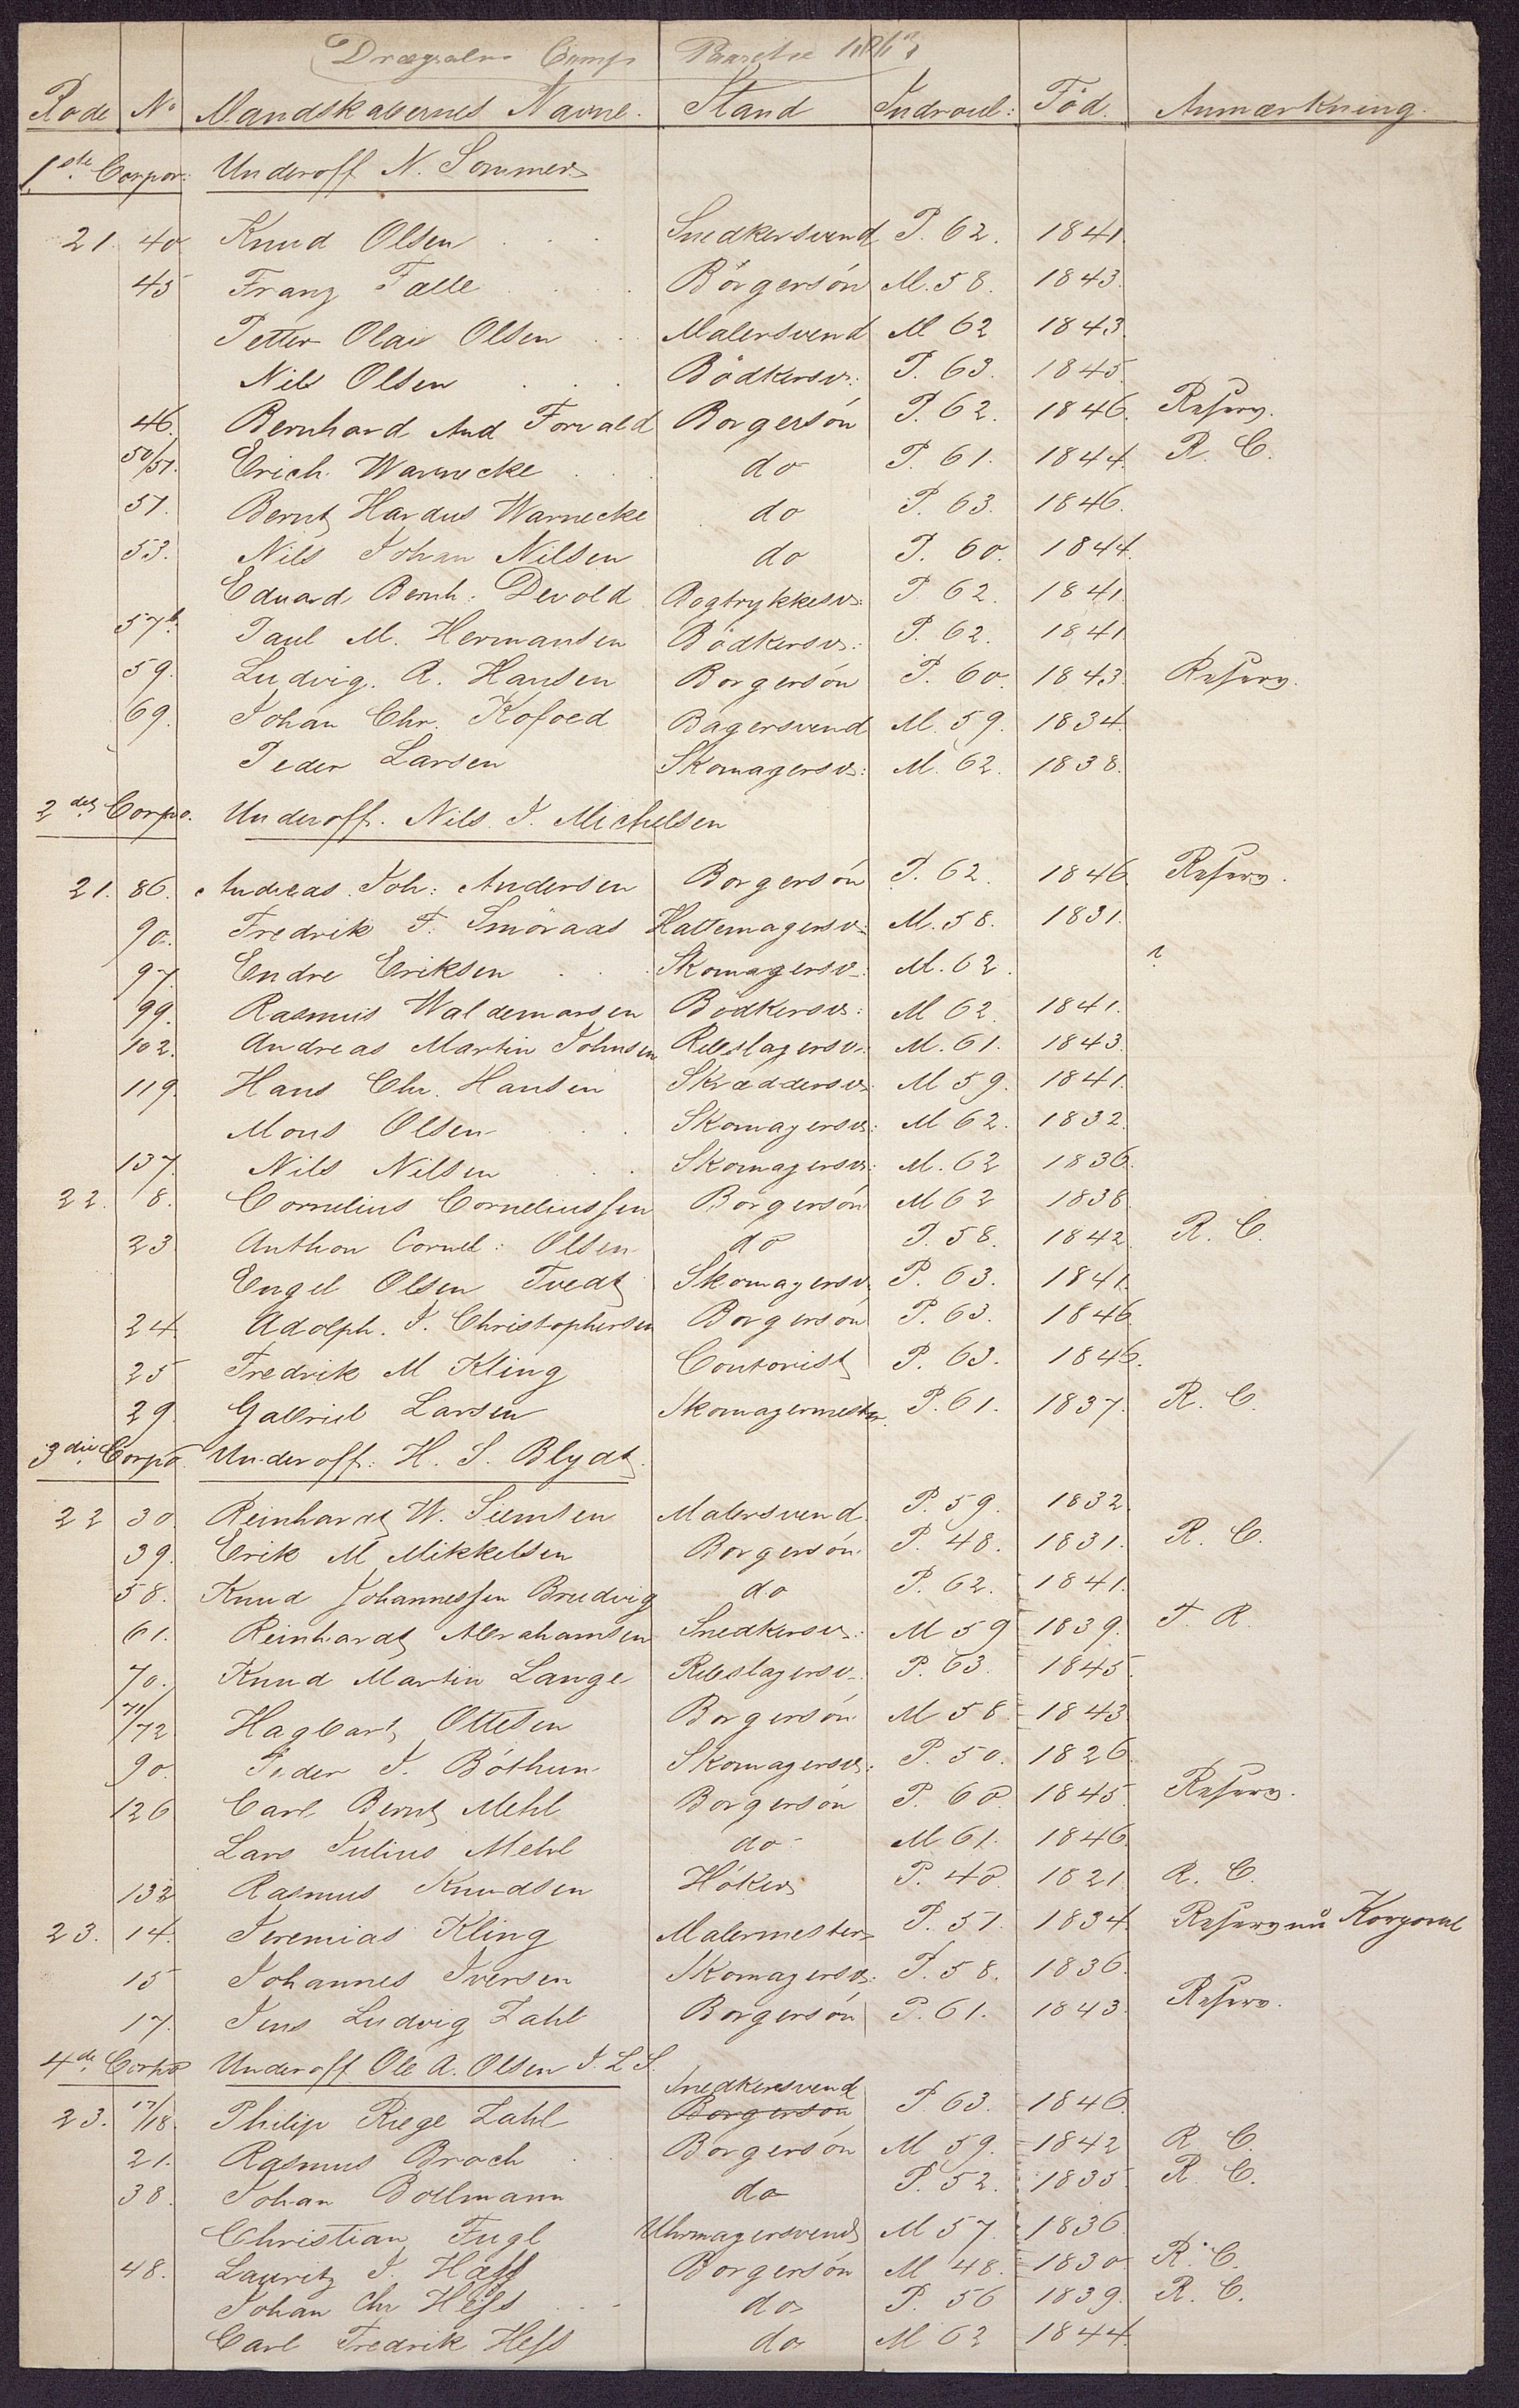 Dræggens Comp
Rode No Mandskabernes Navne. Stand Indroul: Föd. Anmærkning.
1ste Corpor: Underoff N. Sommer
21. 40 Knud Olsen Snedkersvend P. 62. 1841.
45 Franz Falle Borgersön M. 58. 1843.
Petter Olai Olsen Malersvend M 62 1843.
Nils Olsen Bödkersv: P. 63. 1845.
46. Bernhard And Forvald Borgersön P. 62. 1846. Reserv.
50/51. Erich Warnecke do P. 61. 1844. R. C.
51. Bernt Hardus Warnecke do P. 63. 1846.
53. Nils Johan Nilsen do P. 60. 1844.
Eduard Bernh: Devold Bogtrykkersv: P 62. 1841.
57b. Paul M. Hermansen Bödkersv: P. 62. 1841
59. Ludvig. A. Hansen Borgersön P. 60. 1843. Reserv.
69. Johan Chr. Kofoed Bagersvend M. 59. 1834.
Peder Larsen Skomagersv: M. 62. 1838.
2det Corpo. Underoff. Nils J. Michelsen
21. 86. Andreas Joh: Andersen Borgersön P. 62. 1846. Reserv.
90. Fredrik F. Smöraas Hattemagersv: M. 58. 1831.
97. Endre Eriksen Skomagersv: M. 62. ?
99. Rasmus Waldemarsen Bödkersv: M 62. 1841.
102. Andreas Martin Johnsen Rebslagersv: M. 61. 1843.
119. Hans Chr. Hansen Skræddersv: M 59. 1841.
Mons Olsen Skomagersv: M 62. 1832.
137. Nils Nilsen Skomagersv: M. 62 1836.
22. 8. Cornelius Corneliussen Borgersön M 62 1838
23 Anthon Cornel: Olsen do P. 58. 1842. R. C.
Engel Olsen Tvedt Skomagersv. P. 63. 1841.
24 Adolph. J. Christophersen Borgersön P. 63. 1846.
25 Fredrik M Kling Contorist P. 63. 1846.
29. Gabriel Larsen Skomagermester. P. 61. 1837. R. C.
3die Corpo Underoff: H. S. Blydt.
22 30. Reinhardt W. Siemsen Malersvend. P. 59. 1832.
39. Erik M Mikkelsen Borgersön. P. 48. 1831. R. C.
58. Knud Johannessen Bredvig do P. 62. 1841.
61. Reinhardt Abrahamsen Snedkersv: M 59 1839. T. R.
70. Knud Martin Lange Rebslagersv. P. 63. 1845.
71/72 Hagbart Ottesen Borgersön M 58 1843
90. Peder J. Böthun Skomagersv: P. 50. 1826.
126 Carl Bernt Mehl Borgersön P. 60. 1845. Reserv.
Lars Julius Mehl do M 61. 1846.
132 Rasmus Knudsen Höker P. 40. 1821. R. C.
23. 14. Jeremias Kling Malermester P. 51. 1834. Reserv nu Korporal
15 Johannes Iversen Skomagersv: P. 58. 1836.
17. Jens Ludvig Zahl Borgersön P. 61. 1843. Reserv.
4de Corpo Underoff Ole A. Olsen J. L S.
Snedkersvend
23. 17/18. Philip Riege Zahl Borgerson P 63. 1846.
21. Rasmus Broch Borgersön M 59. 1842 R C.
38. Johan Bollmann do P. 52. 1835 R. C.
Christian Fugl Uhrmagersvend M 57. 1836.
48. Lauritz J. Haff Borgersön M 48. 1830. R. C.
Johan Chr Hess do P. 56 1839. R. C.
Carl Fredrik Hess do M 62 1844.